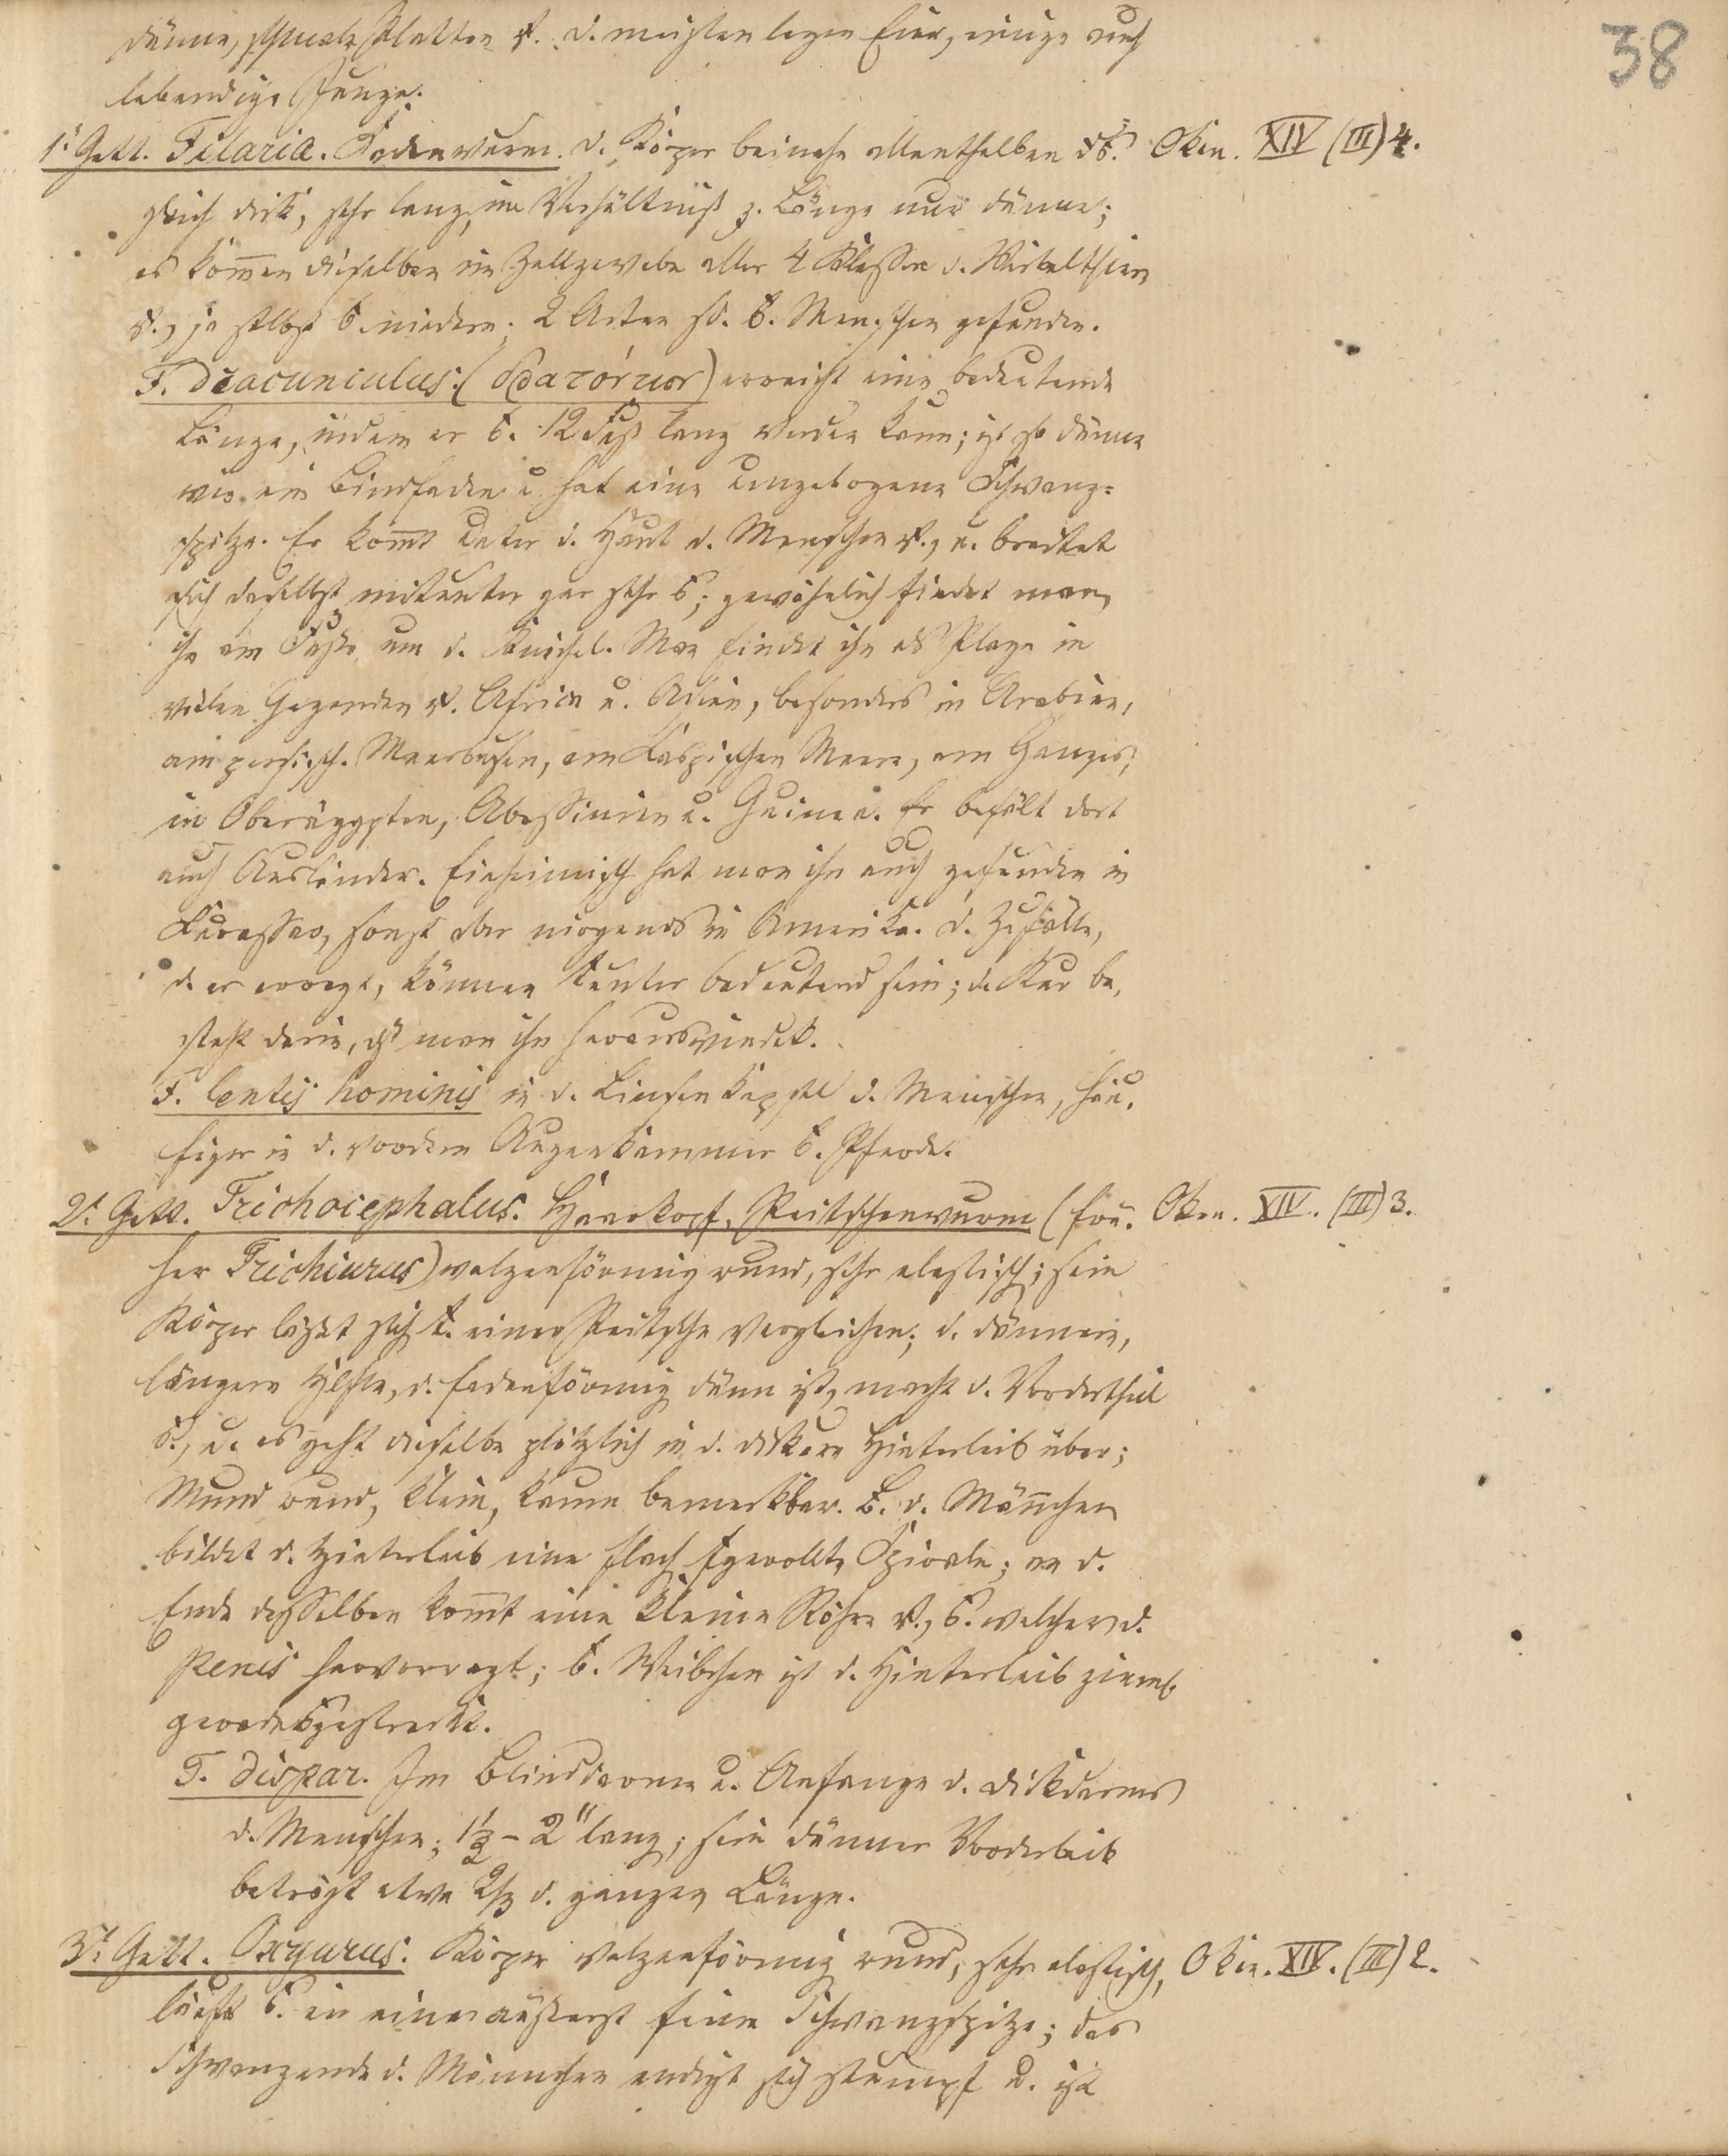 38
dünne, schmale Platten v. d. meisten legen Eier, einige auch
lebendige Junge.
1te Gatt. Filaria. Fadenwurm. d. Körper beinahe allenthalben Oken. XIV (III) 4.
gleich dick, sehr lang, im Verhältniß z. Länge nur dünne;
es kommen dieselben im Zellgewebe aller 4 Klassen d. Wirbelthiere
v., ja selbst b. niedern; 2 Arten sd. b. Menschen gefunden.
F. dracunculus. (δρακόντιον) erreicht eine bedeutende
Länge, indem er b. 12 Fuß lang werden kann; ist so dünne
wie ein Bindfaden u. hat eine umgebogene Schwanz=
spitze. Er kommt unter d. Haut d. Menschen v., u. breitet
sich daselbst mitunter gar sehr; gewöhnlich findet man
ihn am Fuße um d. Knöchel. Man findet ihn als Plage in
vielen Gegenden v. Africa u. Asien, besonders in Arabien,
am persisch. Meerbusen, am Kaspischen Meere, am Ganges,
in Oberägypten, Abessinien u. Guinea. Er befält dort
auch Ausländer. Einheimisch hat man ihn auch gefunden in
Kurassao, sonst aber nirgends in Amerika. d. Zufälle,
d. er erregt, können bedeutend sein; d. Kur be,
steht darin, dß man ihn herauswindet.
F. lentis hominis in d. Linsenkapsel d. Menschen, häu,
figer in d. vordern Augenkammer b. Pferde.
2te Gatt. Trichocephalus. Haarkopf, Peitschenwurm (frü. Oken. XIV. (III) 3.
her Trichiurus) walzenförmig rund, sehr elastisch; sein
Körper läßt sich m. einer Peitsche vergleichen; d. dünnere,
längere Hälfte, d. fadenförmig dünn ist, macht d. Vordertheil
u. es geht dieselbe plötzlich in d. dickern Hinterleib über;
Mund rund, klein, kaum bemerkbar. B. d. Männchen
bildet d. Hinterleib eine flach gerollte Spirale; an d.
Ende desselben kommt eine kleine Röhre v., welcher d.
Penis hervorragt; b. Weibchen ist d. Hinterleib ziemlich
gerade gestreckt.
T. dispar. Im Blinddarme u. Anfange d. Dickdarms
d. Menschen; 1½ – 2" lang; sein dünner Vorderleib
beträgt etwa 2/3 d. ganzen Länge.
3te Gatt. Oxyurus. Körper walzenförmig rund, sehr elastisch, Oken. XIV. (III) 2.
läuft in einer äußerst feine Schwanzspitze; das
Schwanzende d. Männchen endigt sich stumpf u. ist